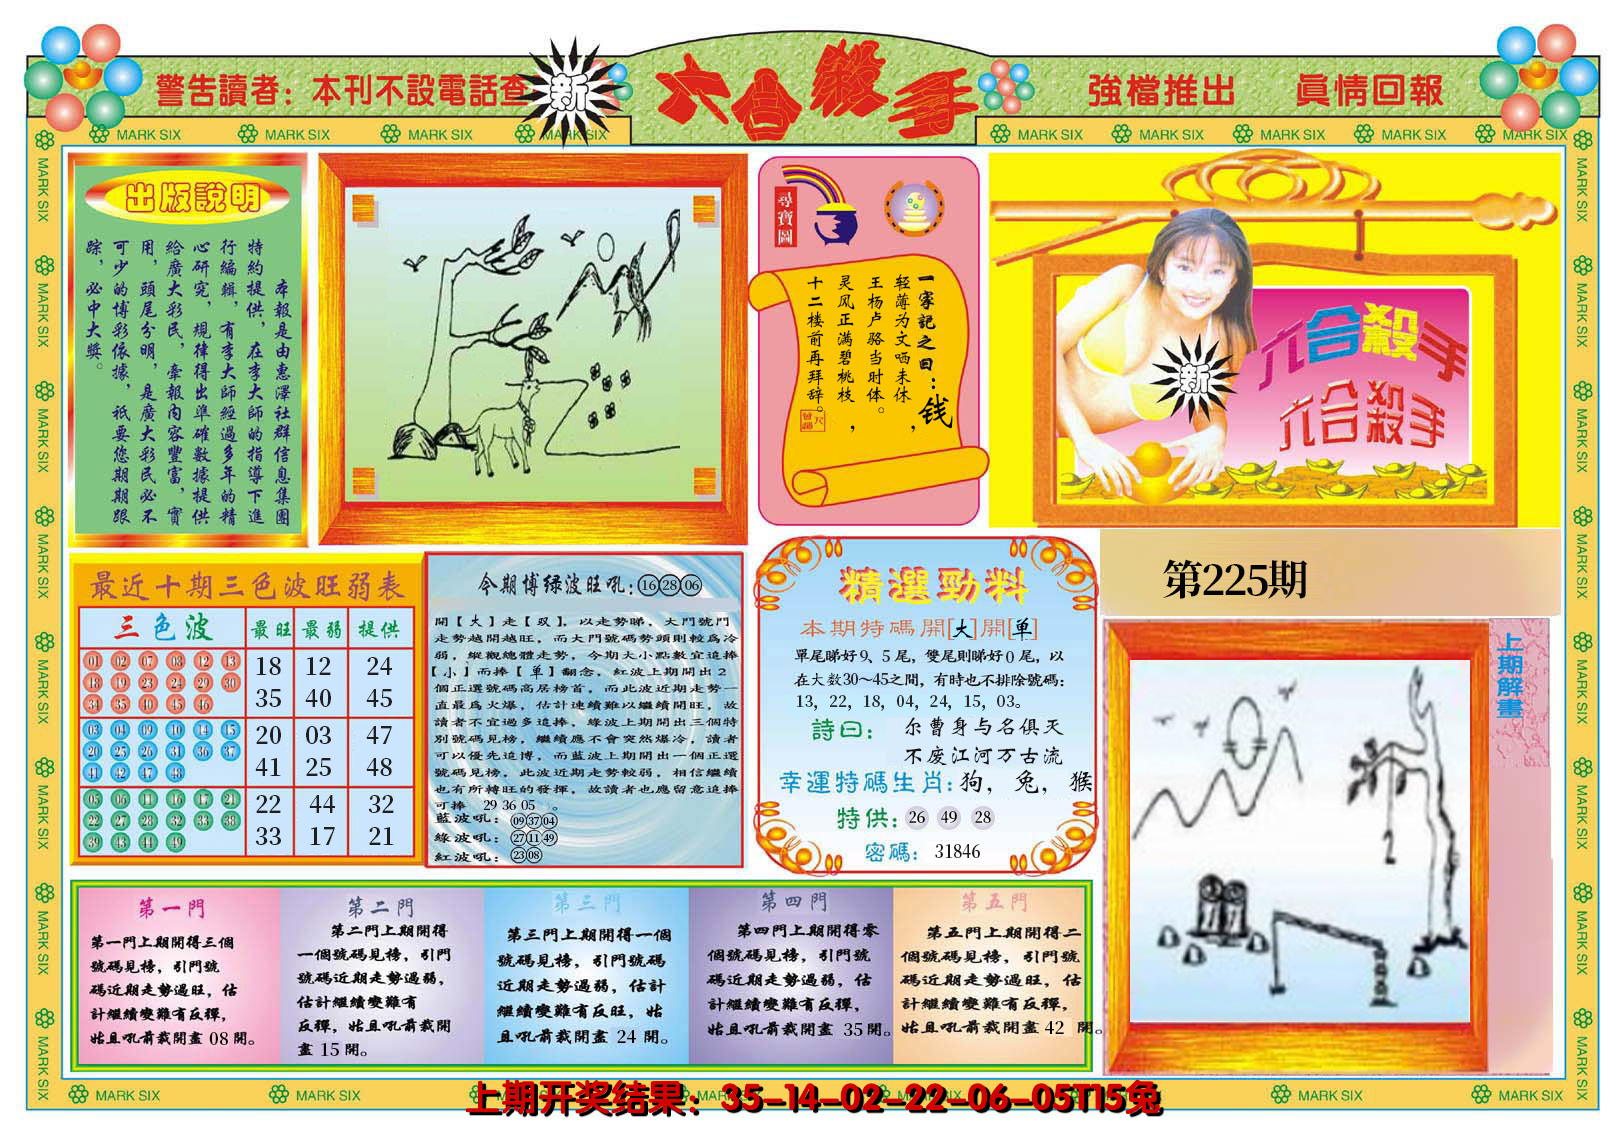 警告讀者：本刊不設電話查
新
六合殺手
強檔推出 眞情回報
MARK SIX
出版說明
本報是由惠澤社群信息集團
特約提供，在李大師的指導下進
行編輯，有李大師經過多年的精
心研究，規律得出準確數據提供
給廣大彩民，牽報內容豐富，實
用，頭尾分明，是廣大彩民必不
可少的博彩依據，祇要您期期跟
踪，必中大獎。
尋寶圖
一字記之曰：钱
轻薄为文哂未休，
王杨卢骆当时体。
灵风正满碧桃枝，
十二楼前再拜辞。
新
六合殺手
六合殺手
第225期
上期解畫
最近十期三色波旺弱表
三色波 最旺 最弱 提供
01 02 07 08 12 13
18 19 23 24 29 30
34 35 40 45 46
18 12 24
35 40 45
03 04 09 10 14 15
20 25 26 31 36 37
41 42 47 48
20 03 47
41 25 48
05 06 11 16 17 21
22 27 28 32 33 38
39 43 44 49
22 44 32
33 17 21
今期博绿波旺吼：⑯㉘06
開【大】走【双】，以走勢睇，大門號門
走勢越開越旺，而大門號碼勢頭則較爲冷
弱，縱觀總體走勢，今期大小點數宜追捧
【小】而捧【单】翻念，紅波上期開出2
個正選號碼高居榜首，而此波近期走勢一
直最爲火爆，估計連續難以繼續開旺，故
讀者不宜過多追捧，綠波上期開出三個特
別號碼見榜，繼續應不會突然爆冷，讀者
可以優先追博，而藍波上期開出一個正選
號碼見榜，此波近期走勢較弱，相信繼續
也有所轉旺的發揮，故讀者也應留意追捧
可捧 29 36 05 。
藍波吼：09 37 04
綠波吼：27 11 49
紅波吼：23 08
精選勁料
本期特碼開[大]開[单]
單尾睇好9、5尾，雙尾則睇好0尾，以
在大数30～45之間，有時也不排除號碼：
13，22，18，04，24，15，03。
詩曰：尔曹身与名俱灭
不废江河万古流
幸運特碼生肖：狗，兔，猴
特供：26 49 28
密碼：31846
第一門
第一門上期開得三個
號碼見榜，引門號
碼近期走勢過旺，估
計繼續變難有反彈，
姑且吼前裁開盡 08 開。
第二門
第二門上期開得
一個號碼見榜，引門
號碼近期走勢過弱，
估計繼續變難有
反彈，姑且吼前裁開
盡 15 開。
第三門
第三門上期開得一個
號碼見榜，引門號碼
近期走勢過弱，估計
繼續變難有反旺，姑
且吼前裁開盡 24 開。
第四門
第四門上期開得零
個號碼見榜，引門號
碼近期走勢過弱，估
計繼續變難有反彈，
姑且吼前裁開盡 35 開。
第五門
第五門上期開得二
個號碼見榜，引門號
碼近期走勢過旺，估
計繼續變難有反彈，
姑且吼前裁開盡 42 開。
上期开奖结果：35-14-02-22-06-05T15兔